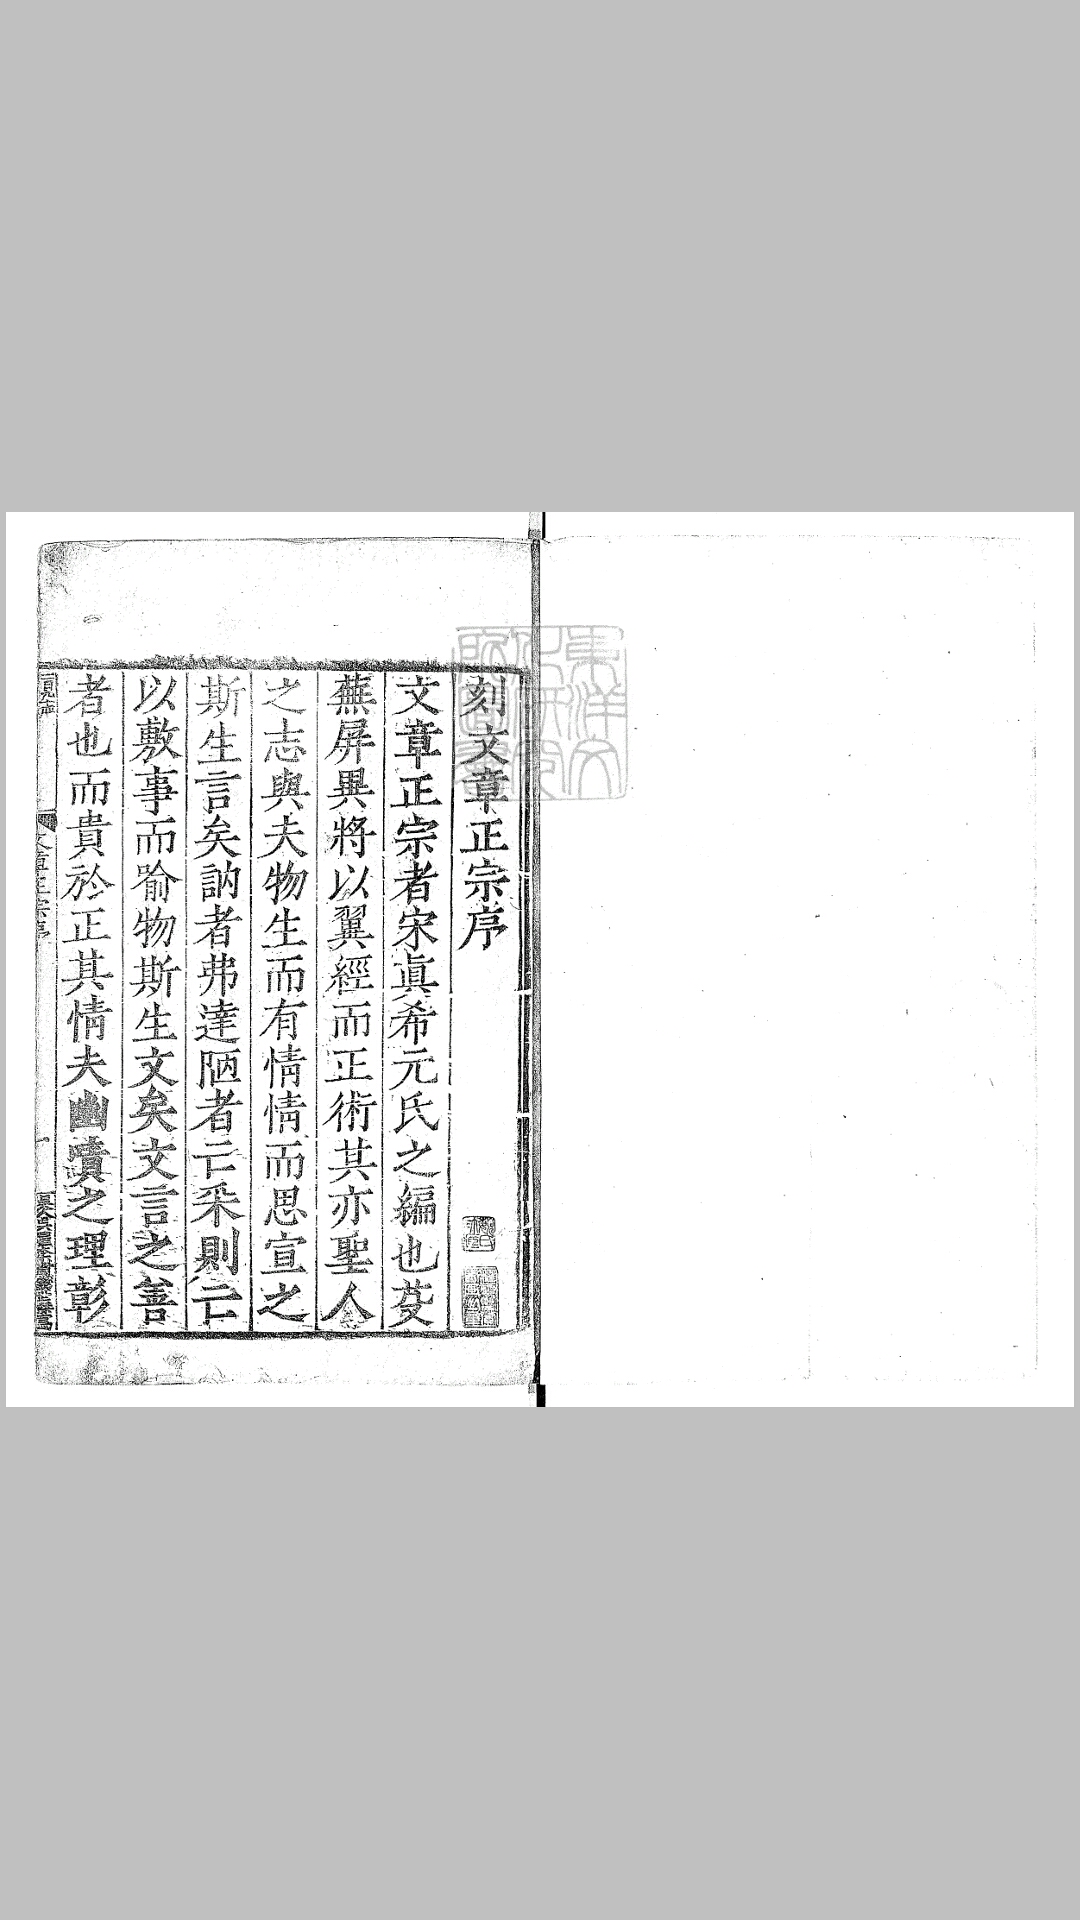 刻文章正宗序
文章正宗者宋眞希元氏之編也芟
蕪屏異將以翼經而正術其亦聖人
之志與夫物生而有情情而思宣之
斯生言矣訥者弗達陋者亡采則亡
以敷事而喻物斯生文矣文言之善
者也而貴於正其情夫幽賾之理彰
文章正宗序
東洋文